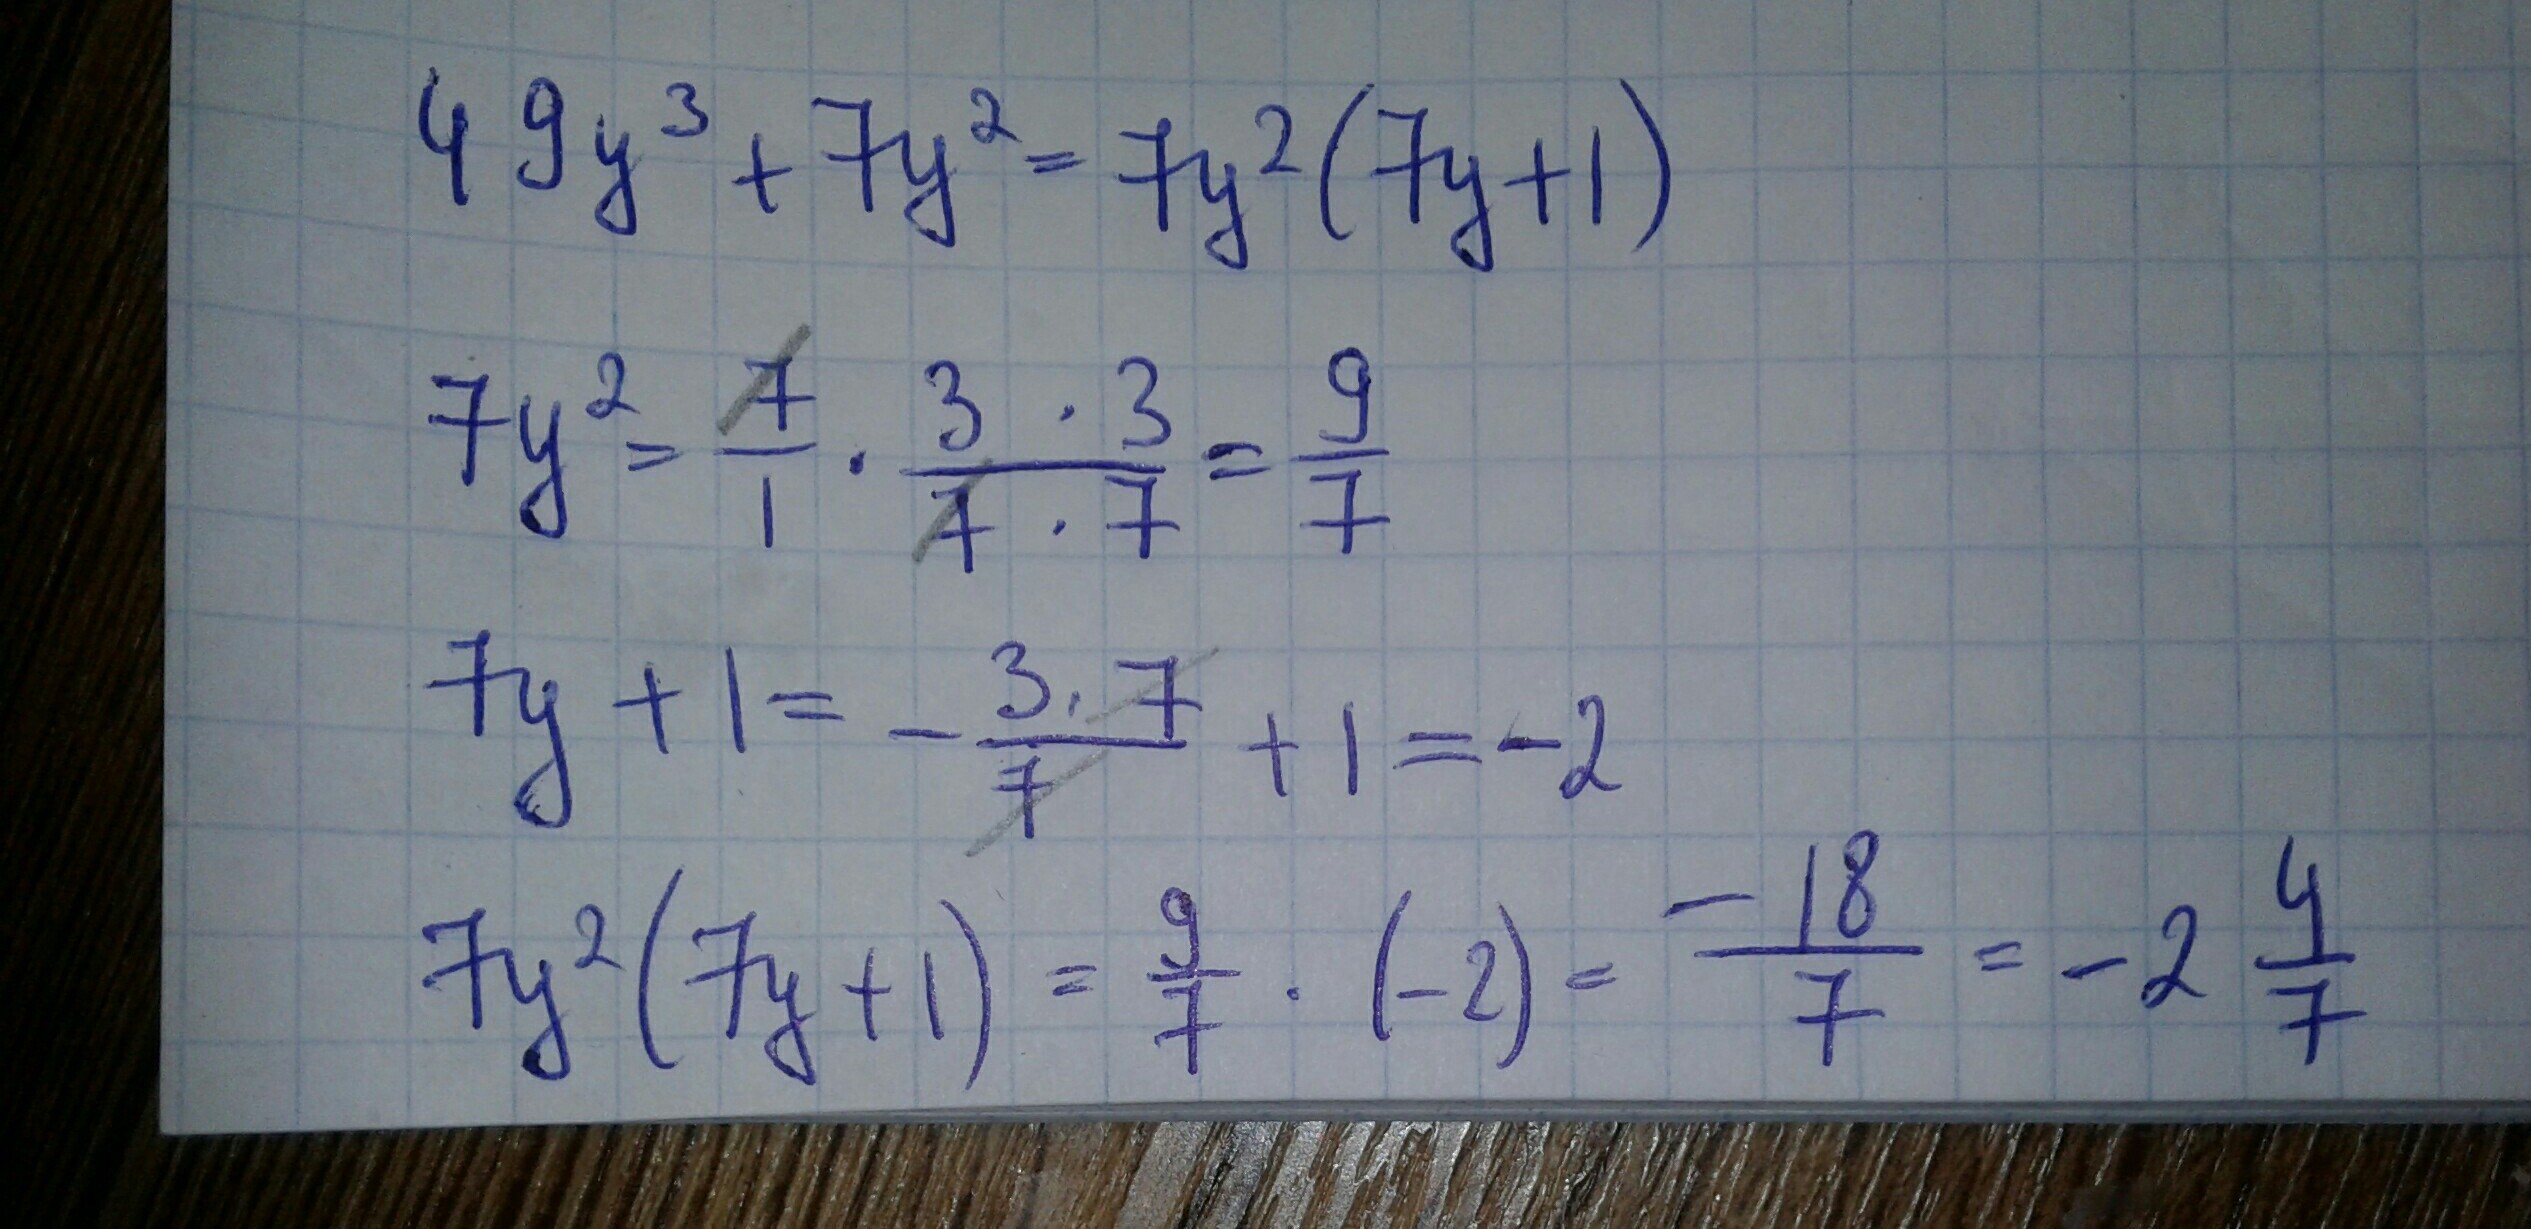 49y³+7y²=7y²(7y+1)
7y²=7/1·3·3/7·7=9/7
7y+1=-3·7/7+1=-2
7y²(7y+1)=9/7·(-2)=-18/7=-2 4/7